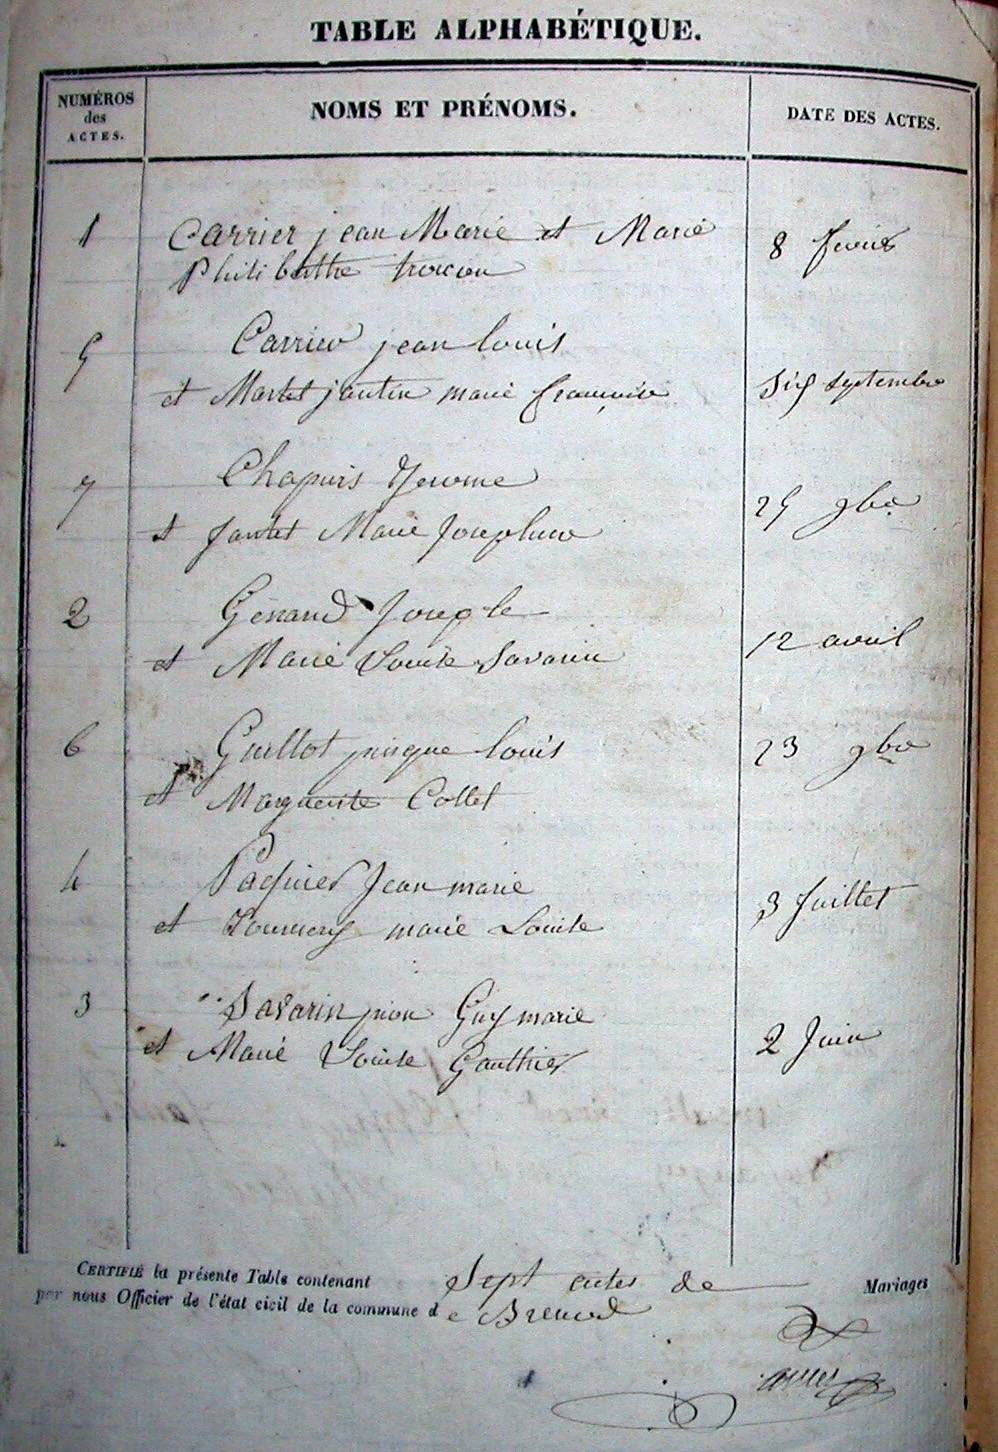 TABLE ALPHABÉTIQUE.
NUMÉROS
des
ACTES.
NOMS ET PRÉNOMS.
DATE DES ACTES.
1 Carrier jean Marie et Marie
Philiberthe 8 fevrier
5 Carrier jean louis
et Martet jantin marie françoise six septembre
7 Chapuis Jerome
et Jantet Marie Josephine 25 9bre
2 Gerand Joseph
et Marie Louise Savarin 12 avril
6 Guillot louis
et Marguerite Collet 23 9bre
4 Paquier Jean marie
et marie Louise 3 Juillet
3 Savarin Guy marie
et Marie Louise Gauthier 2 Juin
CERTIFIÉ la présente Table contenant Sept actes de Mariages
par nous Officier de l'état civil de la commune de Brenod